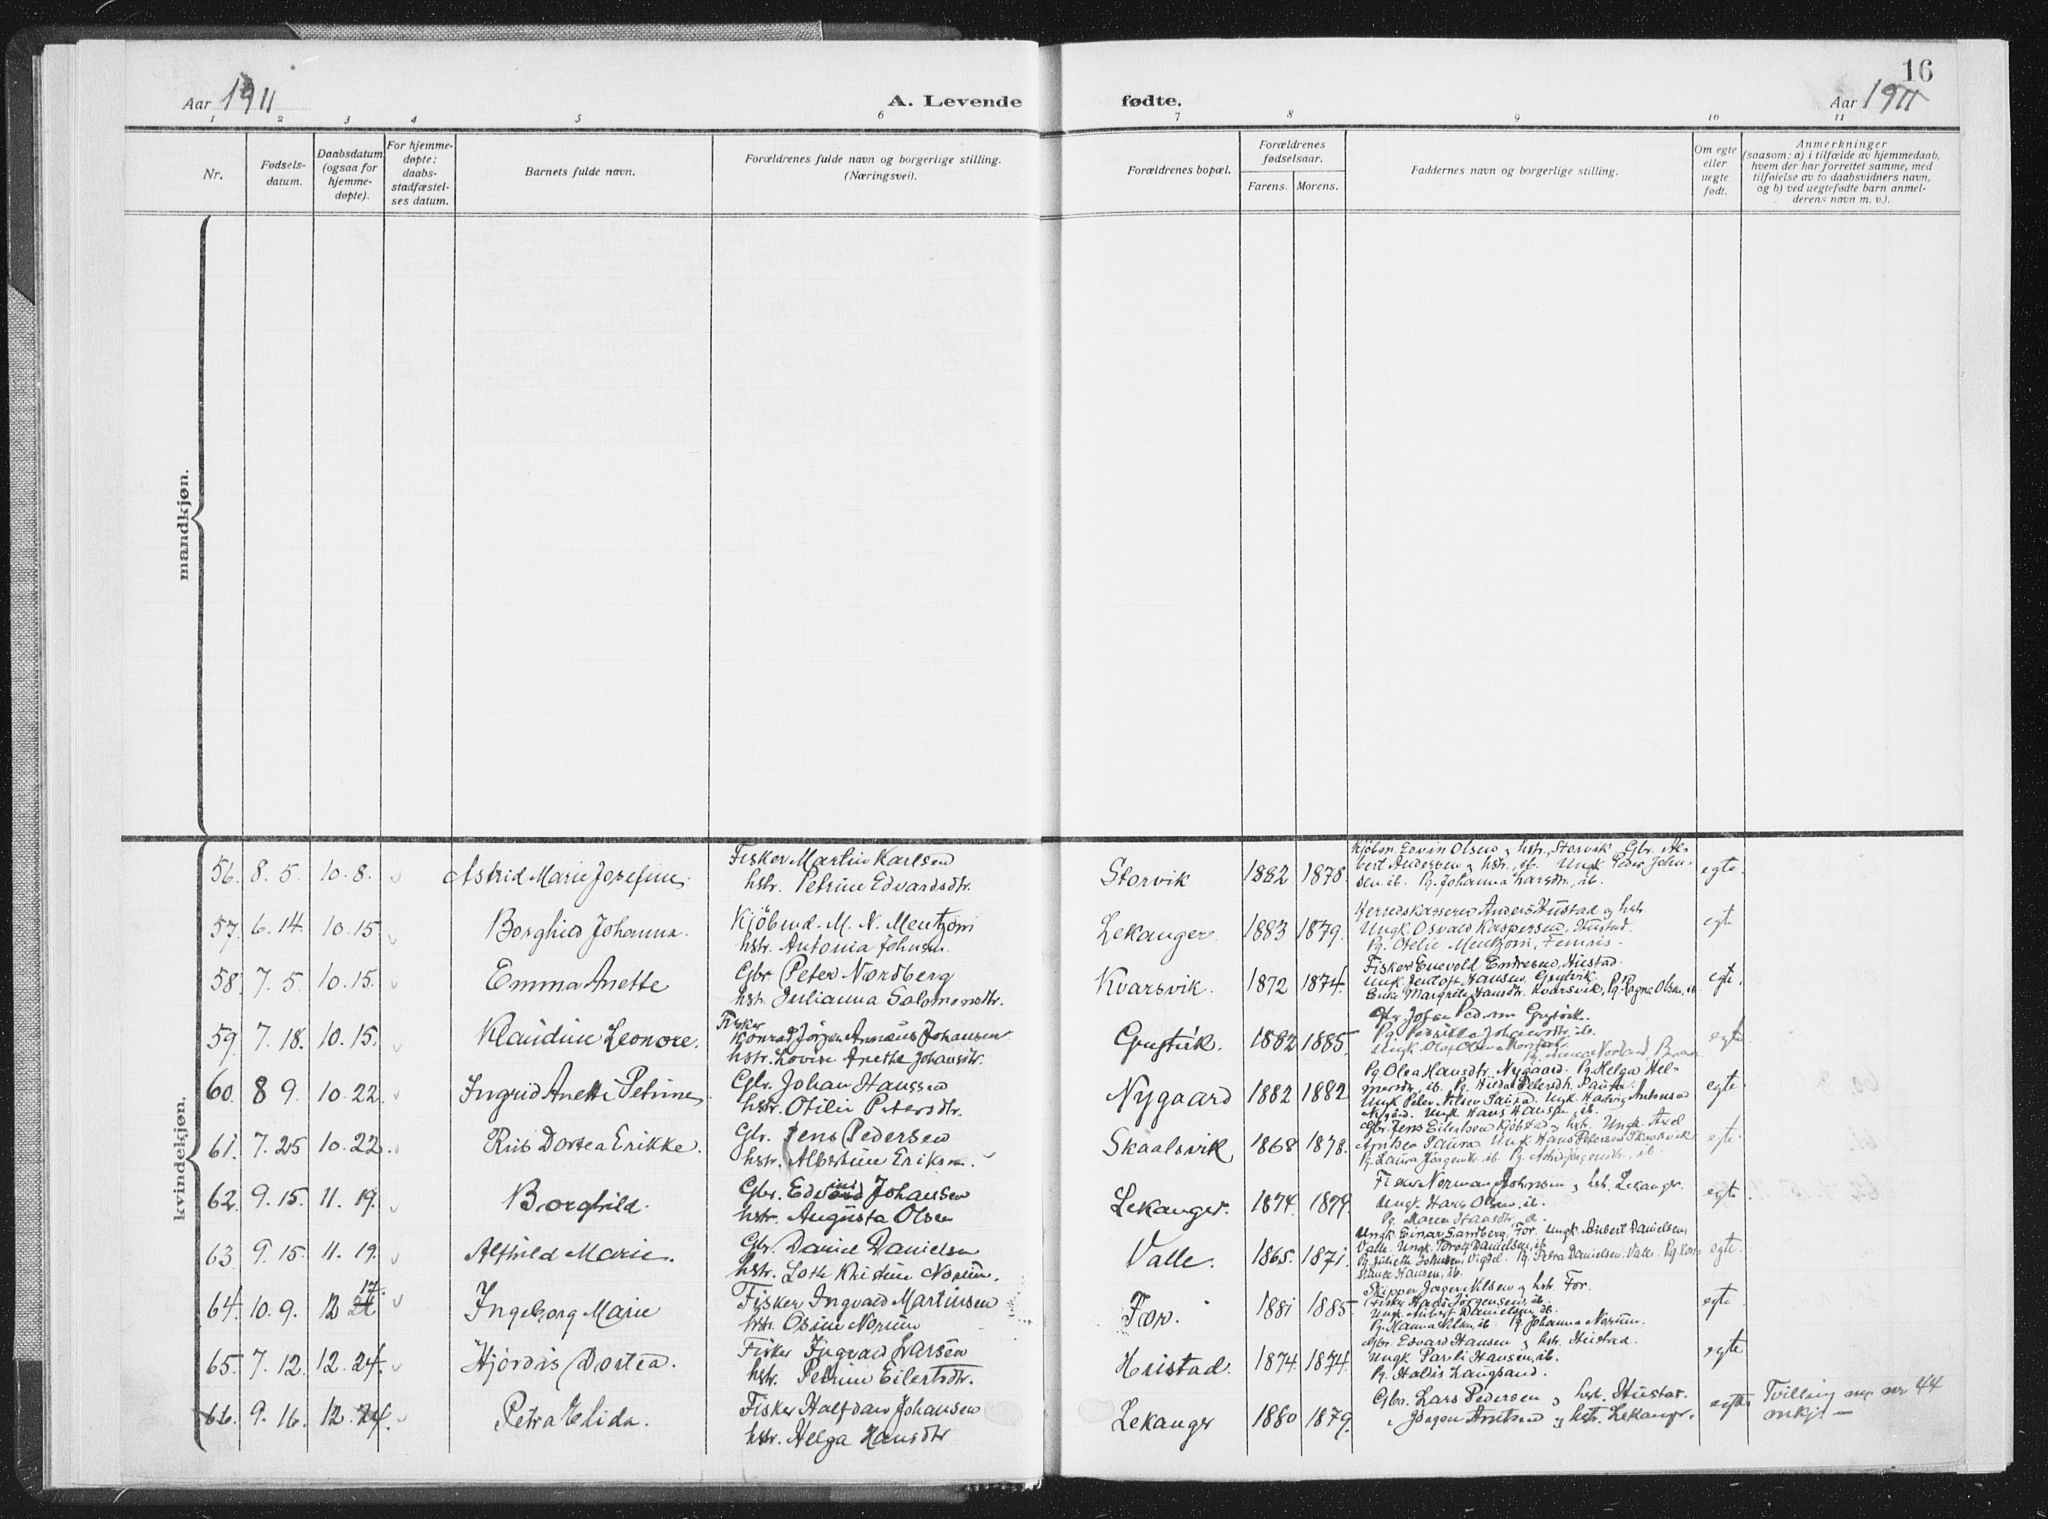 16
Aar 1911 A. Levende fødte. Aar 1911
1 2 3 4 5 6 7 8 9 10 11
Nr.
Fødsels-
datum.
Daabsdatum
(ogsaa for
hjemme-
døpte).
For hjemme-
døpte:
daabs-
stadfæstel-
ses datum.
Barnets fulde navn.
Forældrenes fulde navn og borgerlige stilling.
(Næringsvei).
Forældrenes bopæl.
Forældrenes
fødselsaar.
Farens. Morens.
Faddernes navn og borgerlige stilling.
Om egte
eller
uegte
født.
Anmerkninger
(saasom: a) i tilfælde av hjemmedaab,
hvem der har forrettet samme, med
tilføielse av to daabsvidners navn,
og b) ved uegtefødte barn anmel-
derens navn m. v.).
mandkjøn.
kvindekjøn.
56. 8. 5. 10. 8. Astrid Marie Josefine.
Fisker Martin Karlsen
hstr. Petrine Edvardsdtr.
Storvik 1882 1878.
Kjøbm. Edvin Olsen og hstr., Storvik Gbr. Al-
bert Andersen og hstr, ib. Ungk. Peder John-
sen ib. Pg. Johanna Larsdtr, ib.
egte.
57. 6. 14 10. 15. Borghild Johanna.
Kjøbmd. M. N. Mentzoni
hstr. Antonia Johnsen
Lekanger. 1883 1879.
Herredskasserer Anders Hustad og hstr
Ungk. Osvald Kaspersen, Hustad.
Pg. Otelie Mentzoni,
egte
58. 7. 5. 10. 15. Emma Anette
Gbr Peter Nordberg
hstr. Julianna Salomonsdtr.
Kvarsvik. 1872 1874.
Fisker Enevold Endresen, Hustad.
Ungk. Jentoft Hansen,
Margrete Hansdtr. Kvarsvik, Pg. Ragna Olsen, ib.
egte.
59. 7. 18. 10. 15. Klaudine Leonore.
Fisker
Konrad Jørgen Johansen
hstr. Lovise Anethe Johansdtr.
1882 1885.
Gbr. Johan
Pg. Pernilla
Ungk. Olaf Olsen
egte
60. 8 9. 10. 22. Ingrid Anette Petrine
Gbr. Johan Hanssen
hstr. Otilie Petersdtr.
Nygaard 1882 1882
Pg Olea Hansdtr, Nygaard. Pg Helga Hel-
mersdtr, ib. Pg. Hilda Petersdtr.
Ungk Peter Nilsen Saura. Ungk Antonsen
Nygård. Ungk Hans Hansen, ib.
egte
61. 7. 25 10. 22. Dortea Erikke.
Gbr. Jens Pedersen
hstr. Albertine Eriksen.
Skaalsvik 1868 1878.
Gbr. Jens Eilertsen og hstr. Ungk. Axel
Arntsen Saura Ungk Hans Petersen Skaalsvik
Pg. Laura Jørgensdtr. ib. Pg. Astrid Jørgensdtr, ib.
egte.
62. 9. 15. 11. 19. Borghild.
Gbr. Edvin Johansen
hstr. Augusta Olsen
Lekanger. 1874. 1879.
Fisker Norman Johnsen og hst. Lekangr.
Ungk. Hans Olsen, ib.
Pg. Maren Hansdtr, ib.
egte.
63 9. 15. 11. 19. Alfhild Marie.
Gbr. Daniel Danielsen
hstr. Kristine Norum.
Valle. 1865. 1871.
Ungk Einar Sandberg, For. Ungk. Anbert Danielsen,
Valle. Ungk. Danielsen, ib.
Johnsen, Pg. Petra Danielsen. Valle. Pg. Kon-
stance Hansen, ib.
egte.
17.
64. 10. 9. 12 Ingeborg Marie
Fisker Ingvald Martinsen
hstr. Norum
For. 1881 1885.
Skipper Jørgen Nilsen og hstr For.
Fisker Hans Jørgensen, ib.
Ungk. Anbert Danielsen, ib.
Pg. Hanna Nilsen, ib. Pg. Johanna Norum.
egte.
65. 7. 12. 12. 24. Hjørdis Dortea.
Fisker Ingvald Larsen
hstr. Petrine Eilertsdtr.
Hustad. 1874. 1874.
Gbr. Edvard Hansen og hstr. Hustad.
Ungk Parli Hansen, ib.
Pg. Haldis Langsand.
egte
66. 9. 16. 12. 24. Petra Elida.
Fisker Halfdan Johansen
hstr. Helga Hansdtr
Lekangr 1880 1879.
Gbr. Lars Pedersen og hstr. Hustad.
" Jørgen Arntsen og hstr. Lekangr.
egte. Tvilling m. nr 44
mkj. —